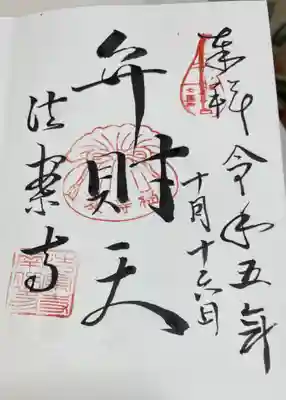 奉拝 令和五年
十月十六日
弁財天
法案寺